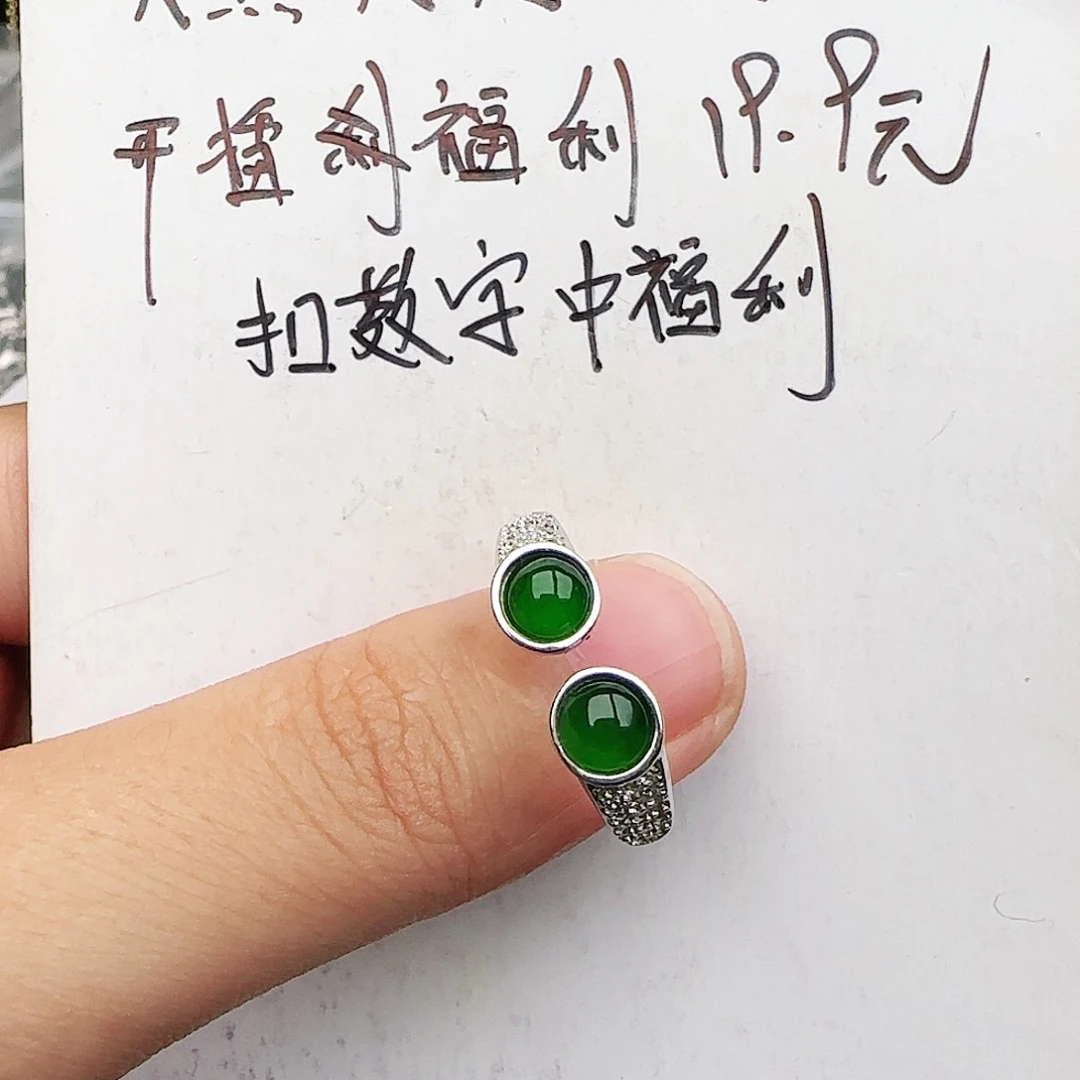 开播福利福利 19.9元
扣数字中福利